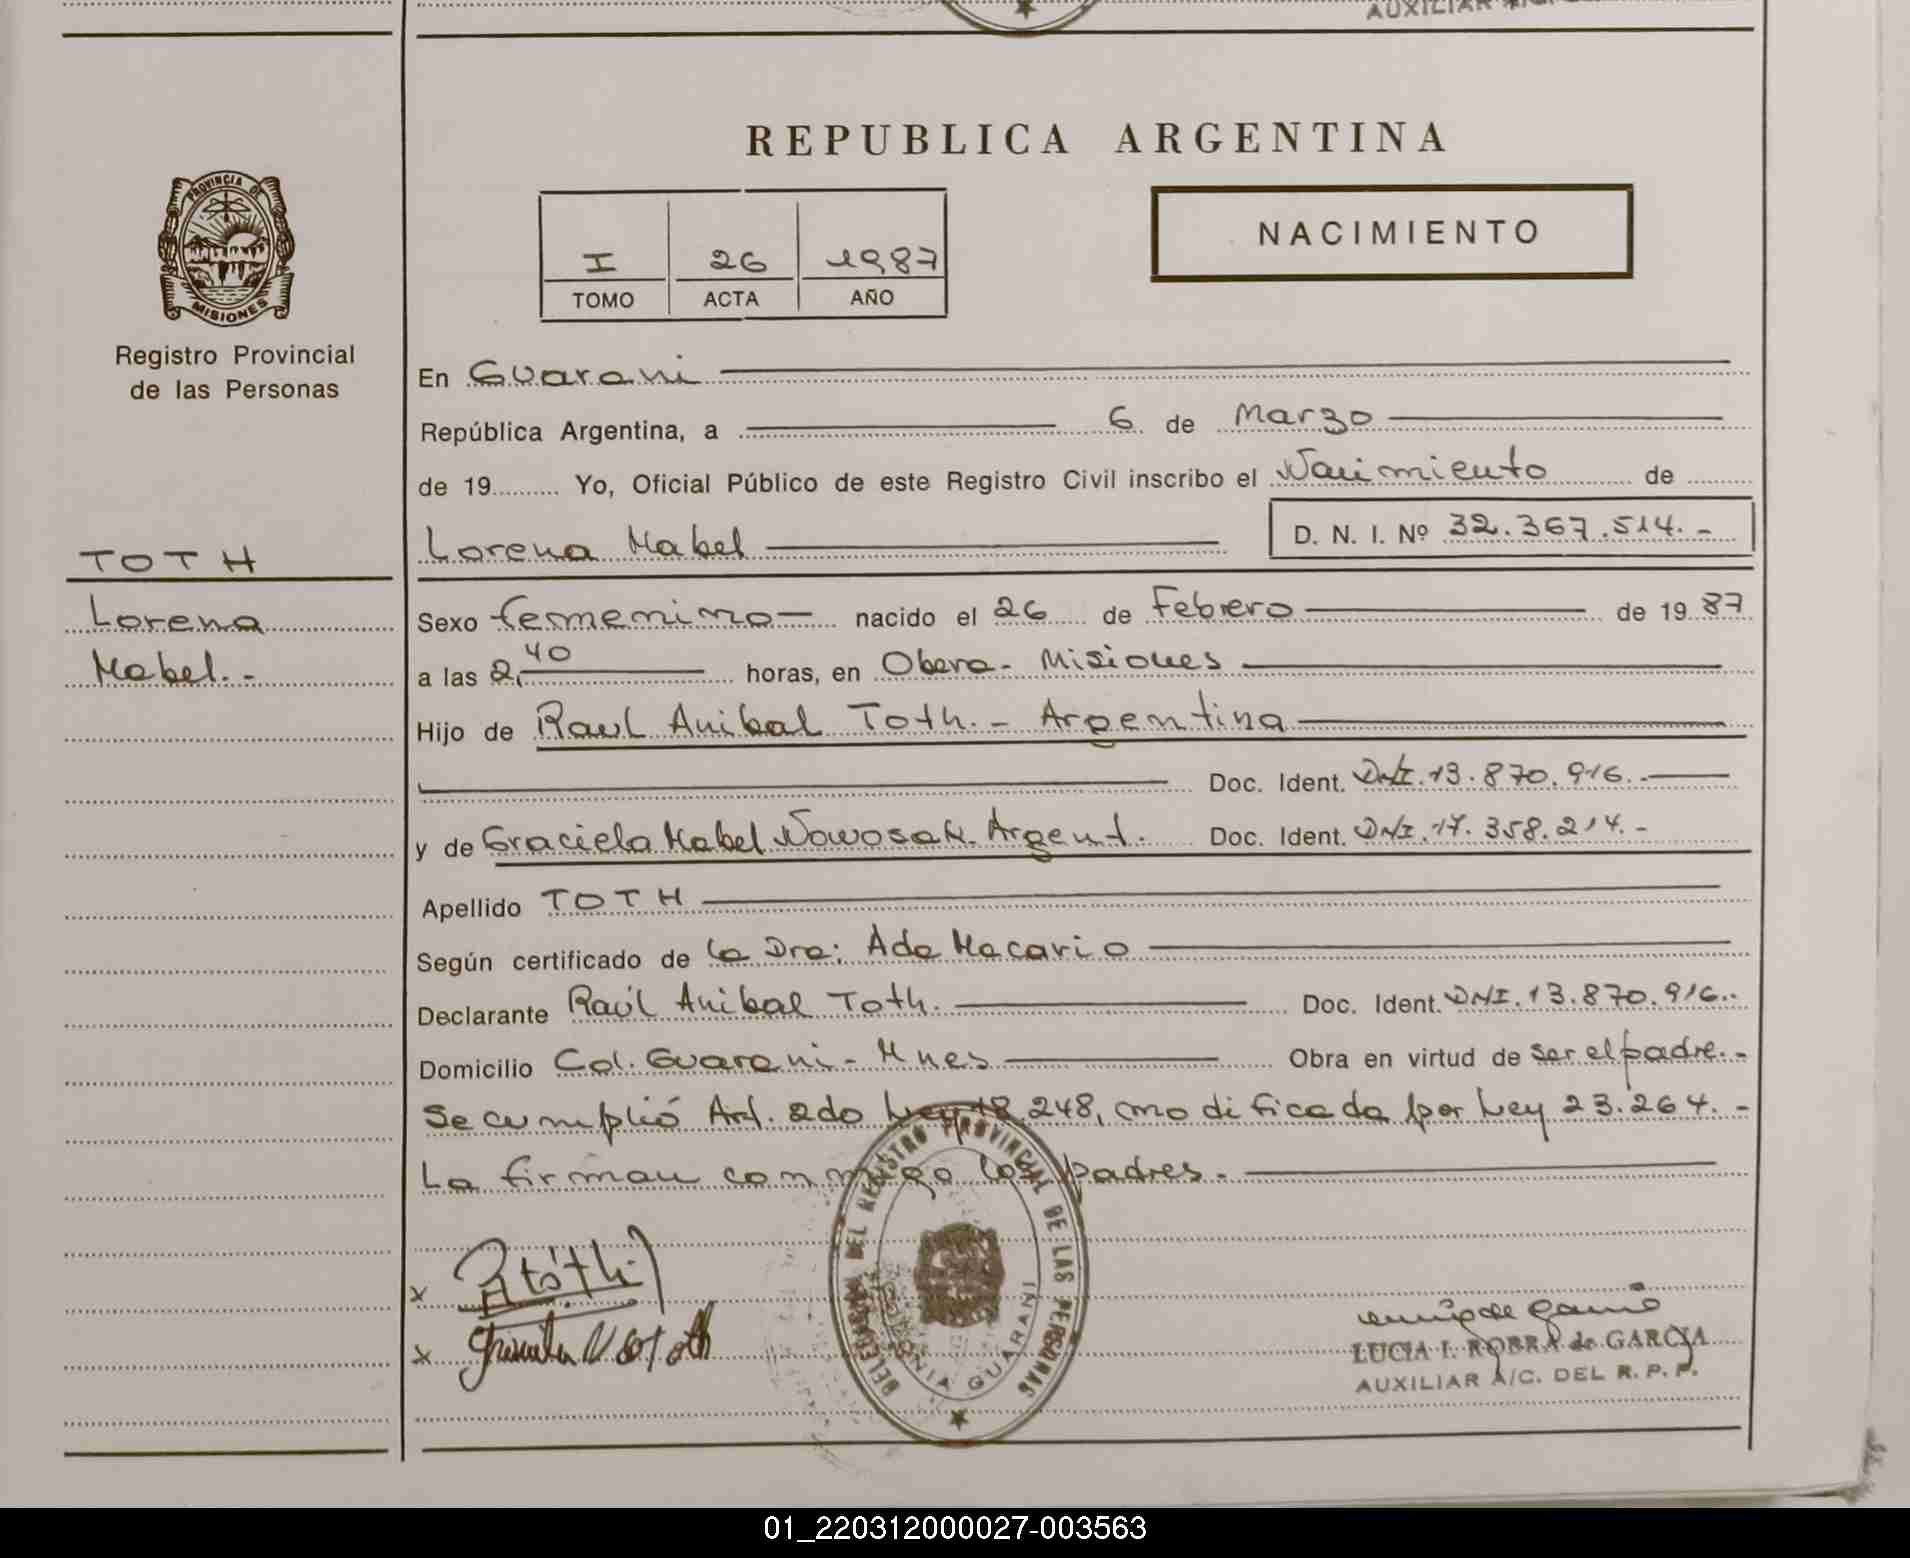 AUXILIAR
REPUBLICA ARGENTINA
PROVINCIA DE
MISIONES
Registro Provincial
de las Personas
I 26 1987
TOMO ACTA AÑO
NACIMIENTO
En Guarani
República Argentina, a 6 de Marzo
de 19 Yo, Oficial Público de este Registro Civil inscribo el Nacimiento de
Lorena Mabel D. N. I. Nº 32.367.514.-
TOTH
Lorena
Mabel.-
Sexo femenino nacido el 26 de Febrero de 19 87
a las 2,40 horas, en Obera- Misiones
Hijo de Raul Anibal Toth.- Argentina
Doc. Ident. DNI.13.870.916.-
y de Graciela Mabel Nowosat. Argent. Doc. Ident. DNI.17.358.214.-
Apellido TOTH
Según certificado de la Dra; Ada Macario
Declarante Raúl Anibal Toth. Doc. Ident. DNI.13.870.916.-
Domicilio Col. Guarani- Mnes Obra en virtud de ser el padre.-
Se cumplió Art. 2do Ley 18.248, modificada por Ley 23.264.-
La firman conmigo los padres.-
x
x
DELEGACION DEL REGISTRO PROVINCIAL DE LAS PERSONAS
COLONIA GUARANI
LUCIA I. ROBRA de GARCIA
AUXILIAR A/C. DEL R. P. P.
01_220312000027-003563